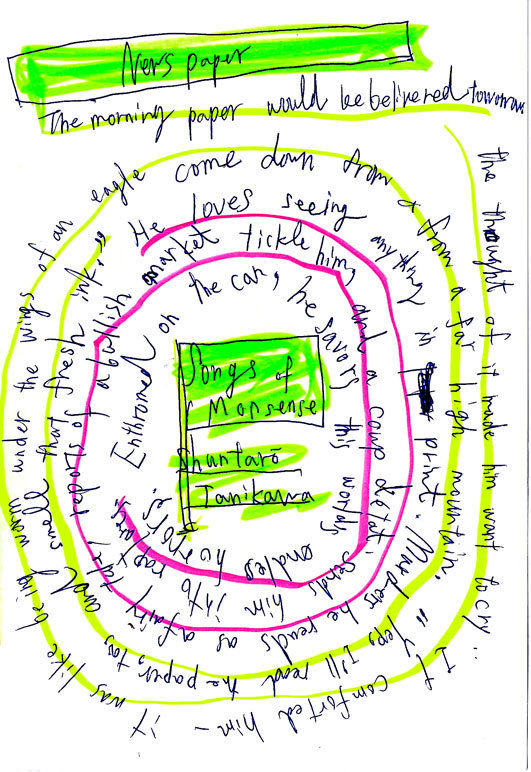 News paper
The morning paper would be belivered tomorrow
the thought of it made him want to cry..
It comforted him – it was like being warm under the wings of an eagle come down from a from a far high mountain.
"Yep, I'll read the paper, too, and smell that fresh ink."
He loves seeing anything in print. Murders he reads as a fairy tale, reports of a bullish market tickle him, and a coup detat sends him into raptures.
Enthroned on the can, he savors this worlds endless horrors.
Songs of
Nonsense
Shuntarō
Tanikawa